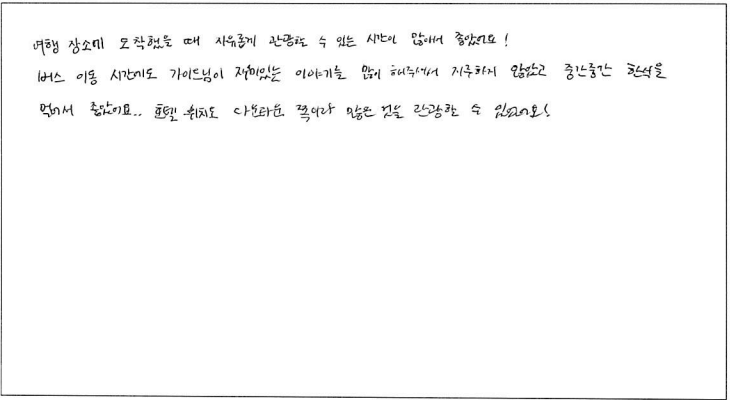 여행 장소에 도착했을 때 자유롭게 관광할 수 있는 시간이 많아서 좋았어요!
버스 이동 시간에도 가이드님이 재미있는 이야기를 많이 해주셔서 지루하지 않았고 중간중간 한식을
먹어서 좋았어요.. 호텔 위치도 다운타운 쪽이라 많은 것을 관광할 수 있었어요!